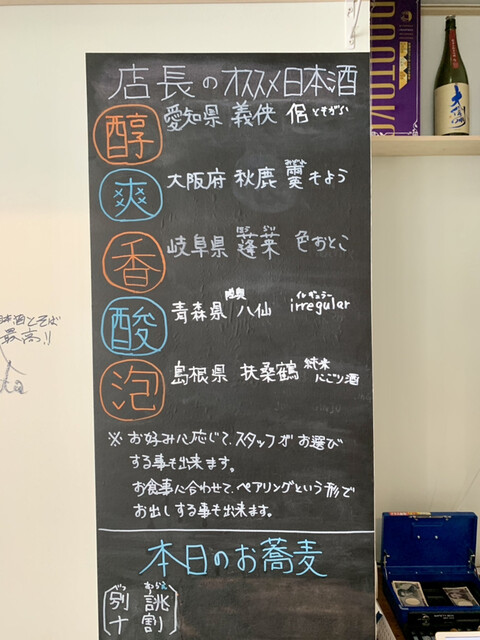 店長のオススメ日本酒
醇 愛知県 義侠 侶ともがら
爽 大阪府 秋鹿 もよう
香 岐阜県 蓬莱 色おとこ
ほう らい
酸 青森県 陸奥八仙 irregular
イレギュラー
泡 島根県 扶桑鶴 純米にごり酒
※お好みに応じて、スタッフがお選び
する事も出来ます。
お食事に合わせて、ペアリングという形で
お出しする事も出来ます。
本日のお蕎麦
十割
日本酒とそば
最高!!